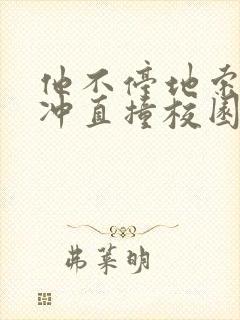 他不停地索
冲直撞校园
弗莱明